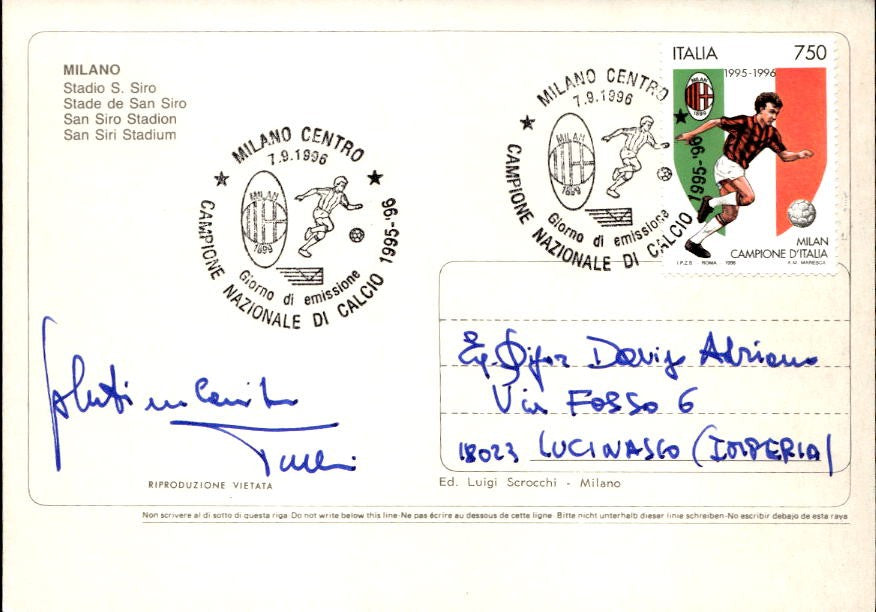 MILANO
Stadio S. Siro
Stade de San Siro
San Siro Stadion
San Siri Stadium
MILANO CENTRO
7.9.1996
MILAN
1899
Giorno di emissione
CAMPIONE NAZIONALE DI CALCIO 1995-96
MILANO CENTRO
7.9.1996
MILAN
1899
Giorno di emissione
CAMPIONE NAZIONALE DI CALCIO 1995-96
ITALIA 750
1995-1996
MILAN
1899
MILAN
CAMPIONE D'ITALIA
I.P.Z.S. ROMA 1996 A.M. MARESCA
Adriano
Via FOSSO 6
18023 LUCINASCO (IMPERIA)
Saluti
RIPRODUZIONE VIETATA
Ed. Luigi Scrocchi - Milano
Non scrivere al di sotto di questa riga Do not write below this line-Ne pas écrire au dessous de cette ligne Bitte nicht unterhalb dieser linie schreiben-No escribir debajo de esta raya